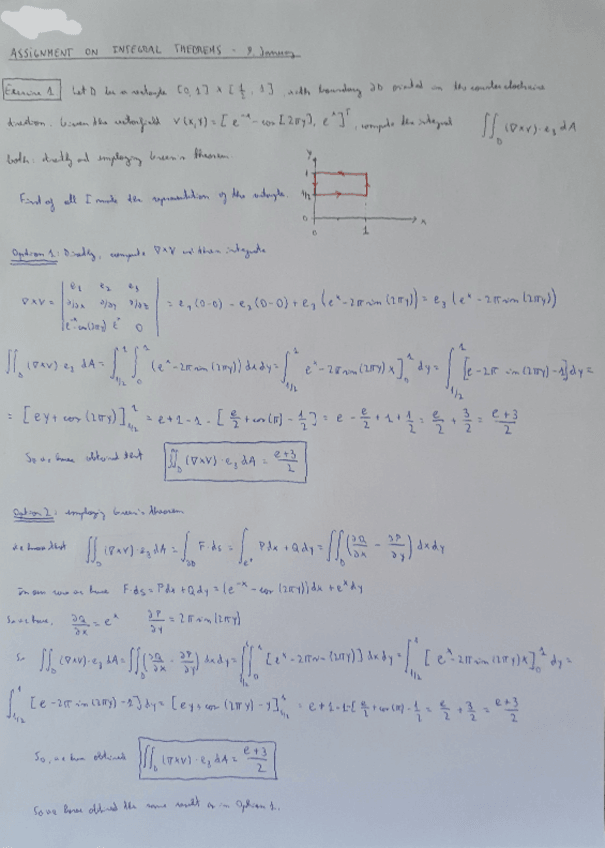 ASSIGNMENT ON INTEGRAL THEOREMS - 9. January
Exercise 1 Let D be a rectangle [0,1] × [½, 1], with boundary ∂D oriented in the counterclockwise
direction. Given the vectorfield V(x,y) = [e^-x - cos[2πy], e^x]^T, compute the integral ∬_D (∇×V)·e3 dA
both: directly and employing Green's theorem.
First of all I made the representation of the rectangle.
y
1
1/2
0
0 1 x
Option 1: Directly, compute ∇×V and then integrate
∇×V = | e1 e2 e3 ∂/∂x ∂/∂y ∂/∂z e^-x-cos(2πy) e^x 0 | = e1(0-0) - e2(0-0) + e3(e^x - 2π sin(2πy)) = e3(e^x - 2π sin(2πy))
∬_D (∇×V) e3 dA = ∫_1/2^1 ∫_0^1 (e^x - 2π sin(2πy)) dx dy = ∫_1/2^1 e^x - 2π sin(2πy) x]_0^1 dy = ∫_1/2^1 [e - 2π sin(2πy) - 1] dy =
= [ey + cos(2πy)]_1/2^1 = e + 1 - 1 - [e/2 + cos(π) - 1/2] = e - e/2 + 1 + 1/2 = e/2 + 3/2 = (e+3)/2
So we have obtained that ∬_D (∇×V)·e3 dA = (e+3)/2
Option 2: employing Green's theorem
We know that ∬_D (∇×V)·e3 dA = ∫_∂D F·ds = ∫ Pdx + Qdy = ∬_D (∂Q/∂x - ∂P/∂y) dxdy
In our case we have F·ds = Pdx + Qdy = (e^-x - cos(2πy)) dx + e^x dy
So we have, ∂Q/∂x = e^x ∂P/∂y = 2π sin(2πy)
So ∬_D (∇×V)·e3 dA = ∬_D (∂Q/∂x - ∂P/∂y) dxdy = ∫_1/2^1 ∫_0^1 [e^x - 2π sin(2πy)] dxdy = ∫_1/2^1 [e^x - 2π sin(2πy) x]_0^1 dy =
∫_1/2^1 [e - 2π sin(2πy) - 1] dy = [ey + cos(2πy) - y]_1/2^1 = e + 1 - 1 - [e/2 + cos(π) - 1/2 = e/2 + 3/2 = (e+3)/2
So, we have obtained ∬_D (∇×V)·e3 dA = (e+3)/2
So we have obtained the same result as in Option 1.